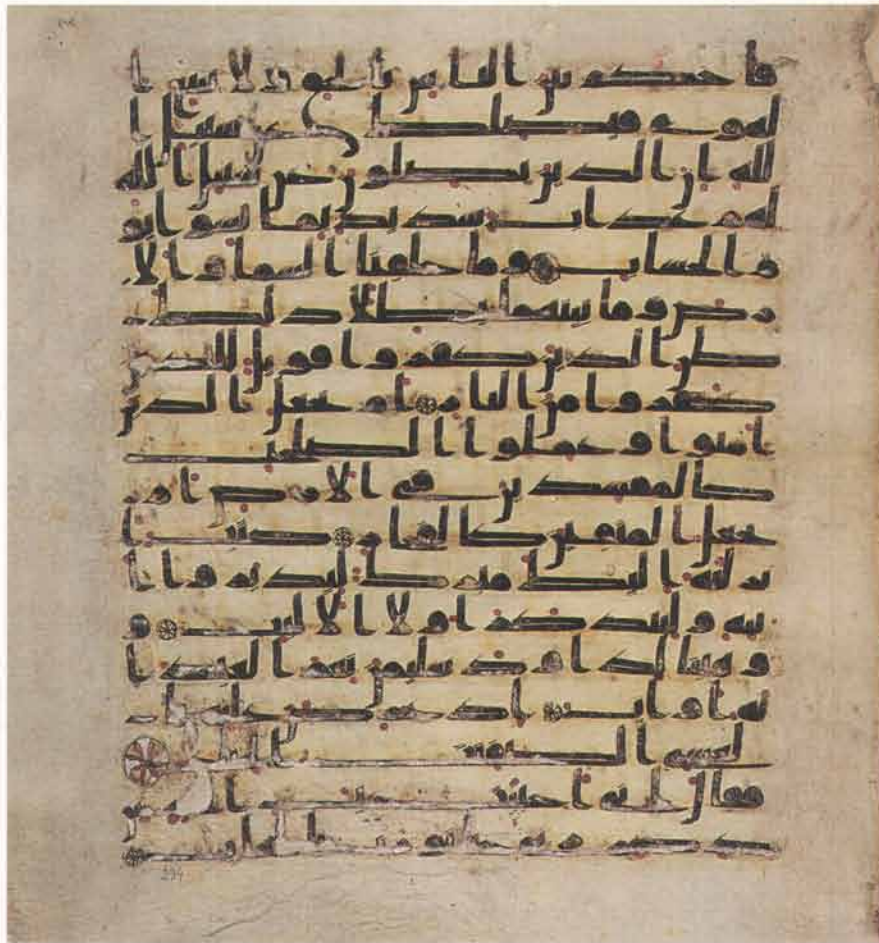 فاحكم بين الناس بالحق ولا تتبع ا
لهوى فيضلك عن سبيل ا
لله ان الذين يضلون عن سبيل الله
لهم عذاب شديد بما نسوا يو
م الحساب وما خلقنا السما والا
رض وما بينهما بطلا ذلك
ظن الذين كفروا فويل للذين
كفروا من النار ام نجعل الذين
امنوا وعملوا الصلحت
كالمفسدين في الارض ام
نجعل المتقين كالفجار كتب ا
نزلنه اليك مبرك ليدبروا ا
يته وليتذكر اولوا الالبب و
وهبنا لداود سليمن نعم العبد ا
نه اواب اذ عرض عليه
بالعشي الصفنت الجياد
فقال اني احببت حب الخير
عن ذكر ربي حتى توارت بالحجاب
294